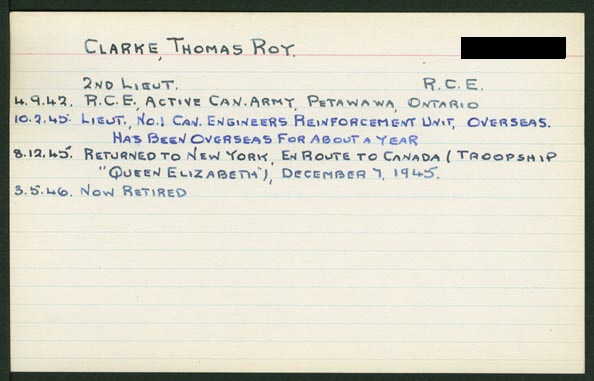 CLARKE, THOMAS ROY.
2ND LIEUT. R.C.E.
4.9.42. R.C.E., ACTIVE CAN. ARMY, PETAWAWA, ONTARIO
10.2.45. LIEUT., NO.1 CAN. ENGINEERS REINFORCEMENT UNIT, OVERSEAS.
HAS BEEN OVERSEAS FOR ABOUT A YEAR
8.12.45. RETURNED TO NEW YORK, EN ROUTE TO CANADA (TROOPSHIP
"QUEEN ELIZABETH"), DECEMBER 7, 1945.
3.5.46. NOW RETIRED